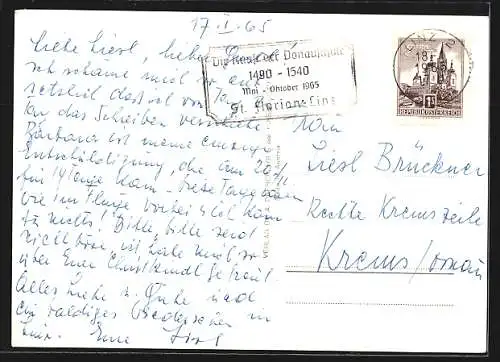 17. I. 65
Liebe Liesl, lieber
ich schäme mich so ent-
setzlich dass ich von Tag zu
Tag das Schreiben verschiebe
Barbara ist meine einzige
Entschuldigung, die am 28.
für 14 Tage kam - diese Tage
wie im Fluge vorbei & ich kam
zu nichts! Bitte, bitte seid
nicht böse, ich habe mich so
über Euer Christkindl gefreut.
Alles Liebe u. Gute und
ein baldiges Wiedersehen in
Linz. Eure
Die Kunst der Donauschule
1490 - 1540
Mai - Oktober 1965
St. Florian - Linz
LINZ 2
18
REPUBLIK ÖSTERREICH
Liesl Brückner
Rechte Kremszeile
Krems / Donau